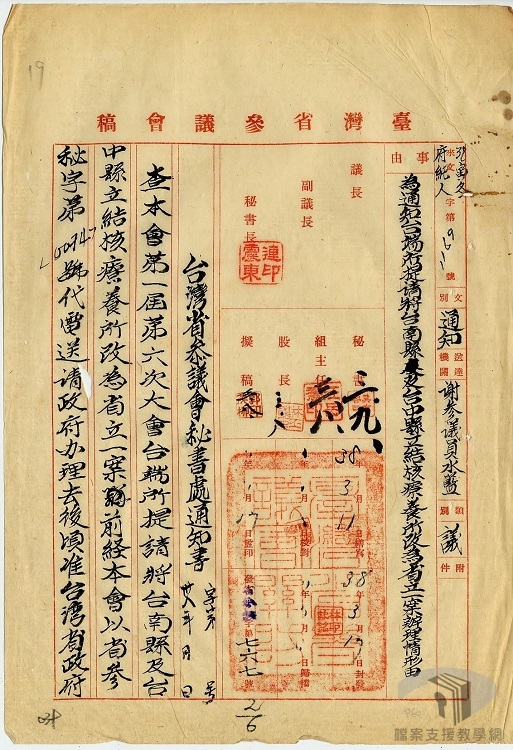 19
臺灣省參議會稿
事由
為通知台端所提請將台南縣及台中縣立結核療養所改為省立一案辦理情形由
字第
號
文別
通知
送達機關
謝參議員水藍
類別
議
附件
議長
副議長
秘書長
連震東印
秘書
組主任
股長
擬稿
38
3
11
38
3
17
封發
歸檔
七六七
號
台灣省參議會秘書處通知書
字第 號
年 月 日
查本會第一屆第六次大會台端所提請將台南縣及台
中縣立結核療養所改為省立一案前經本會以省參
秘字第
號代電送請政府办理去後頃准台灣省政府
2/6
檔案支援教學網